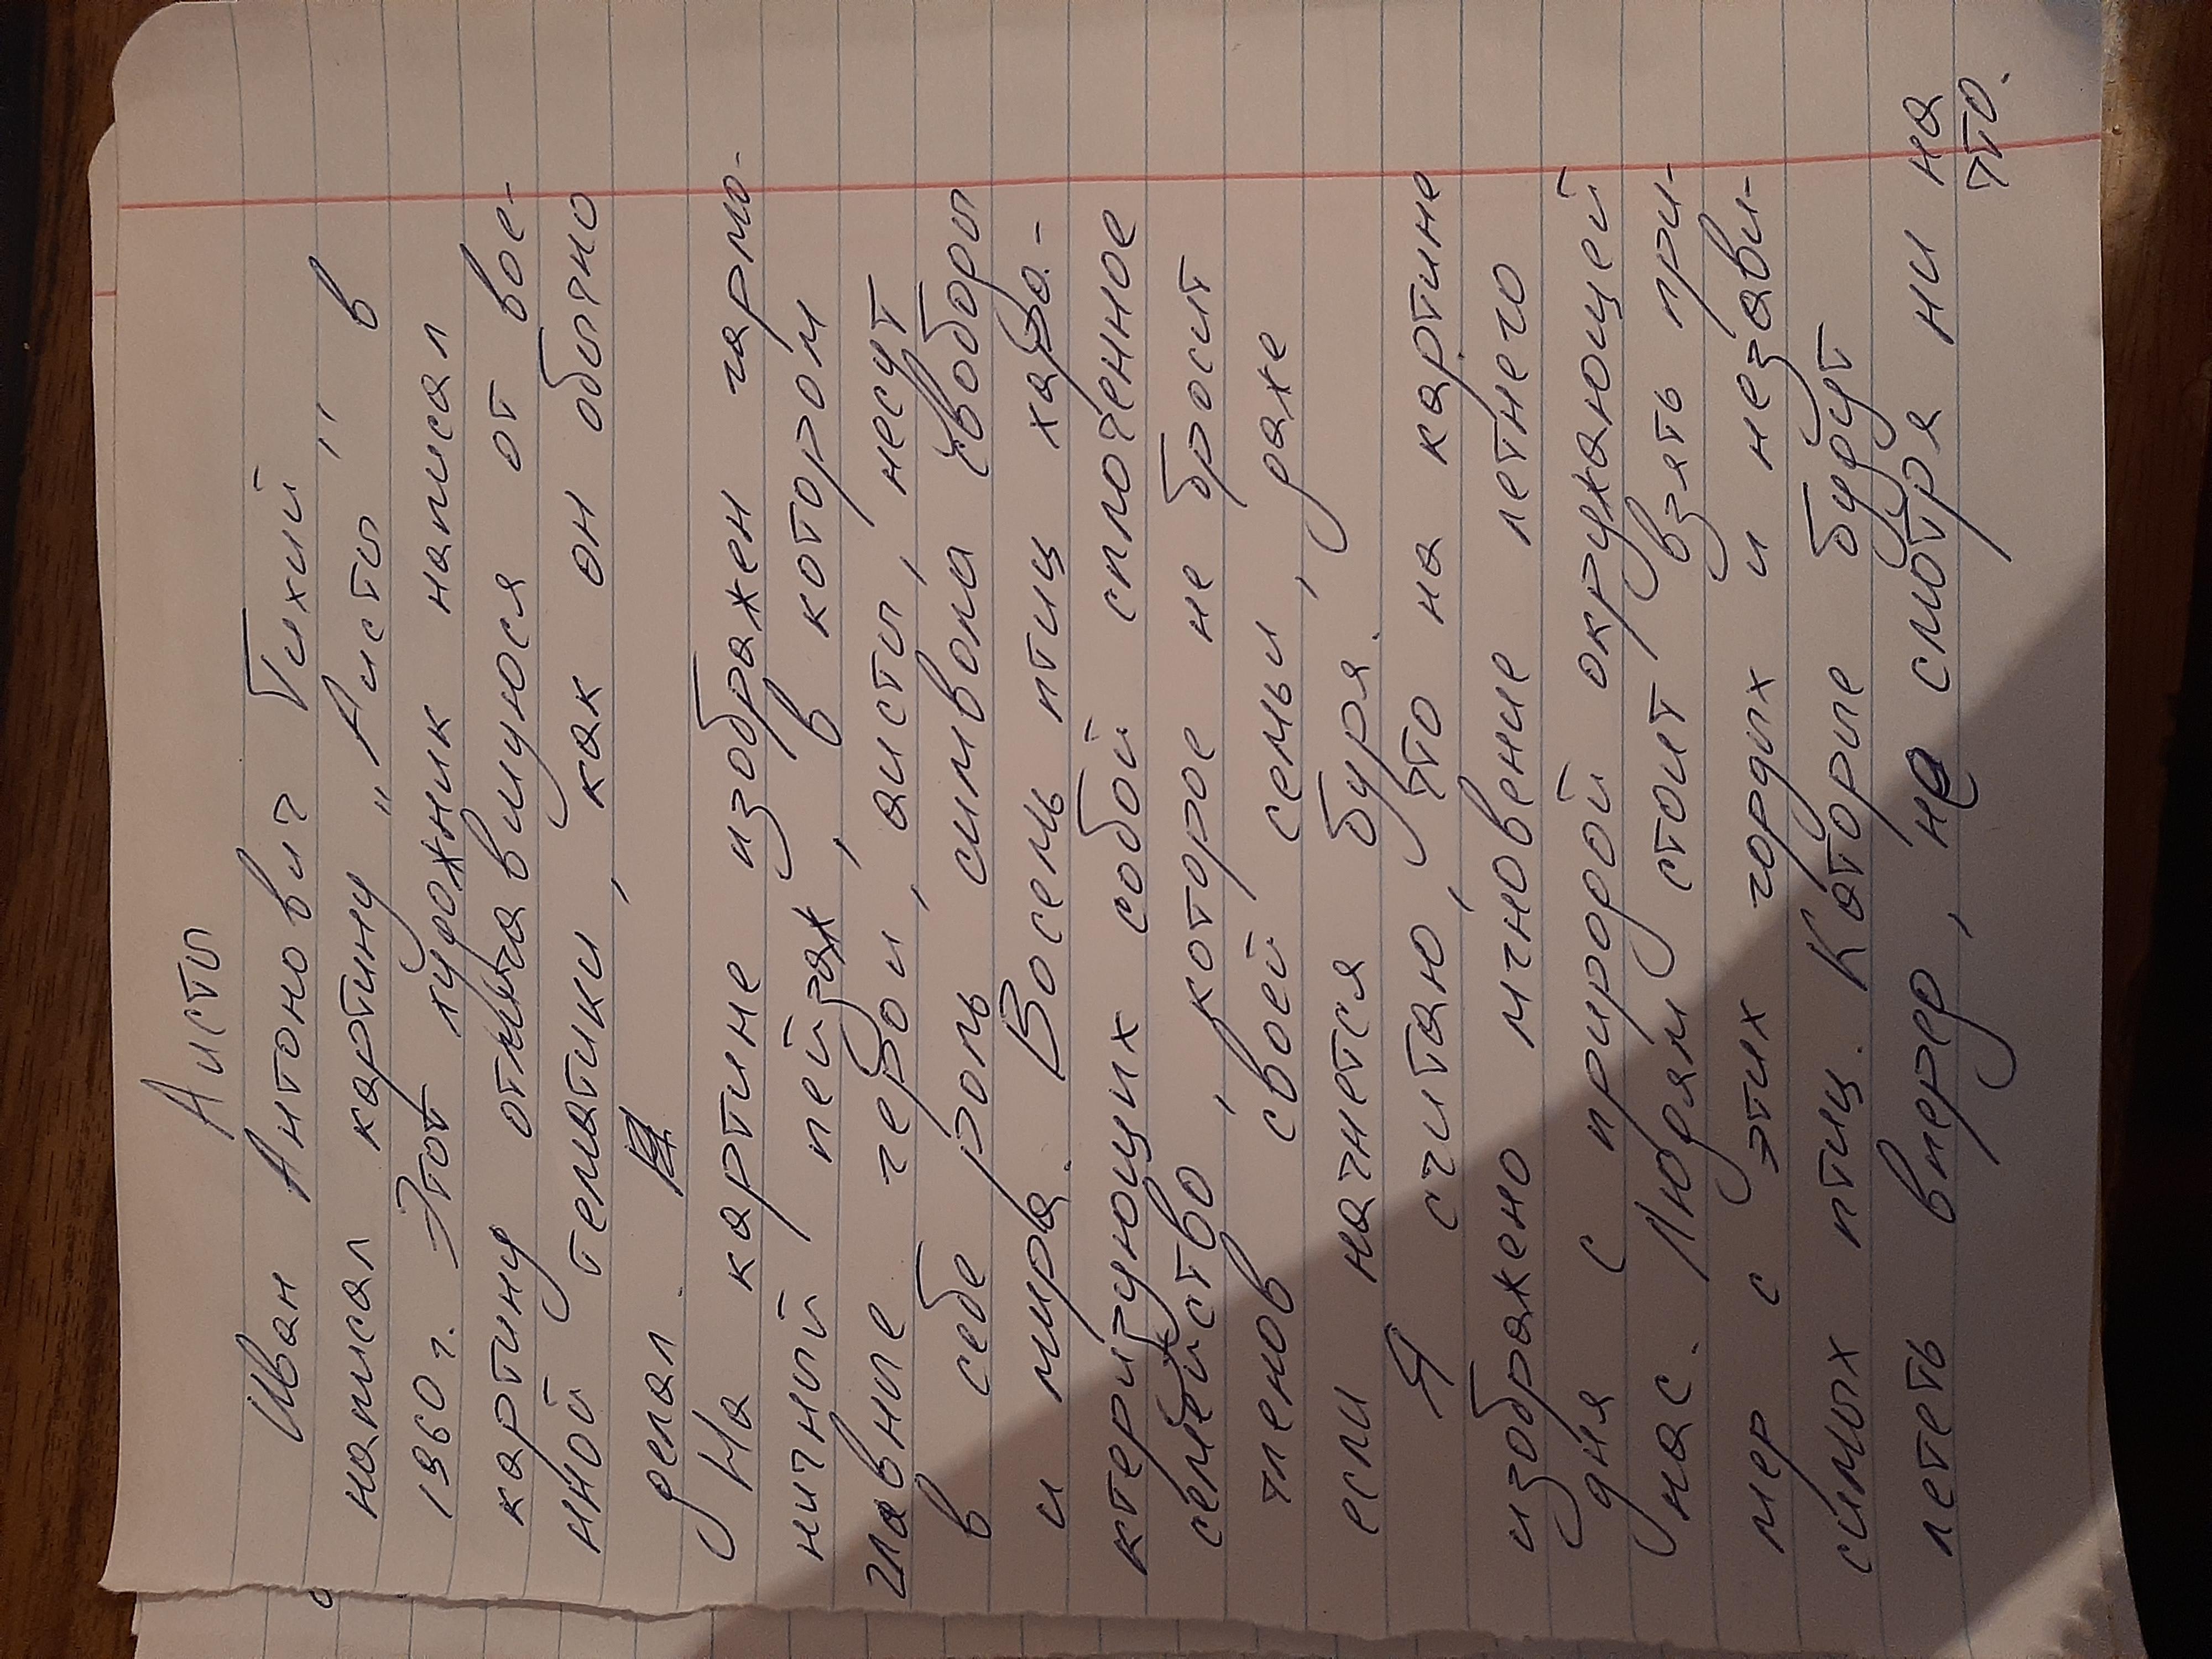 Аисты
Иван Антонович Тихий,
написал картину „Аисты", в
1960 г. Этот художник написал
картину отличавшуюся от вое-
нной тематики, как он обычно
делал.
На картине изображен гармо-
ничный пейзаж, в котором
главные герои, аисты, несут
в себе роль символа свободы
и мира. Восемь птиц хара-
ктеризующих собой сплоченное
семейство, которое не бросит
членов своей семьи, даже
если начнется буря.
Я считаю, что на картине
изображено мгновение летнего
дня с природой окружающей
нас. Людям стоит взять при-
мер с этих гордых и незави-
симых птиц. Каторые будут
лететь вперед, не смотря ни на
что.